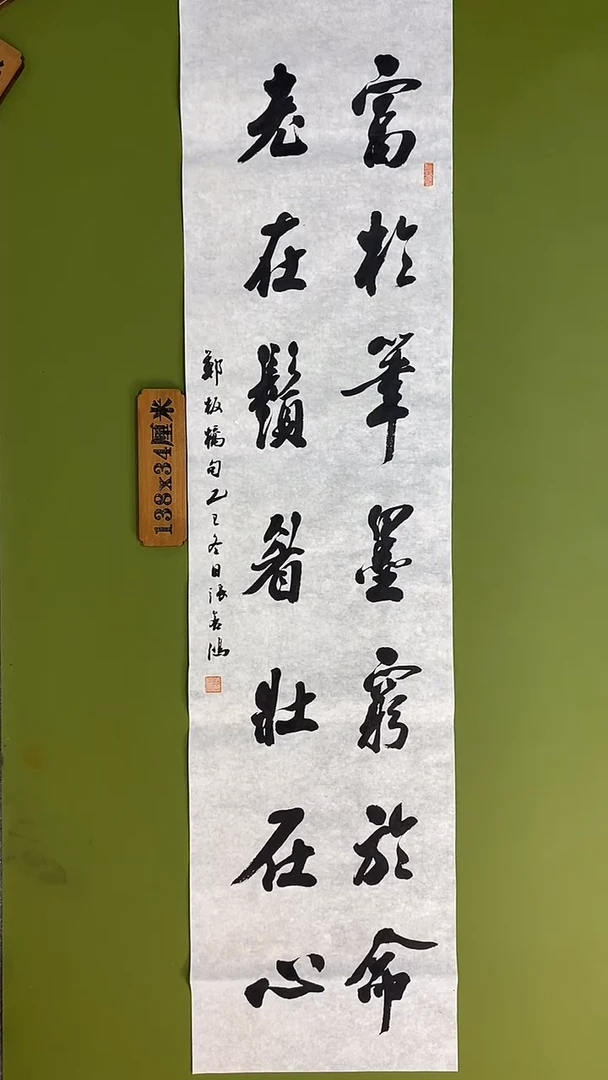 富於筆墨窮於命
老在鬚眉壯在心
鄭板橋句乙巳冬日
138x34厘米